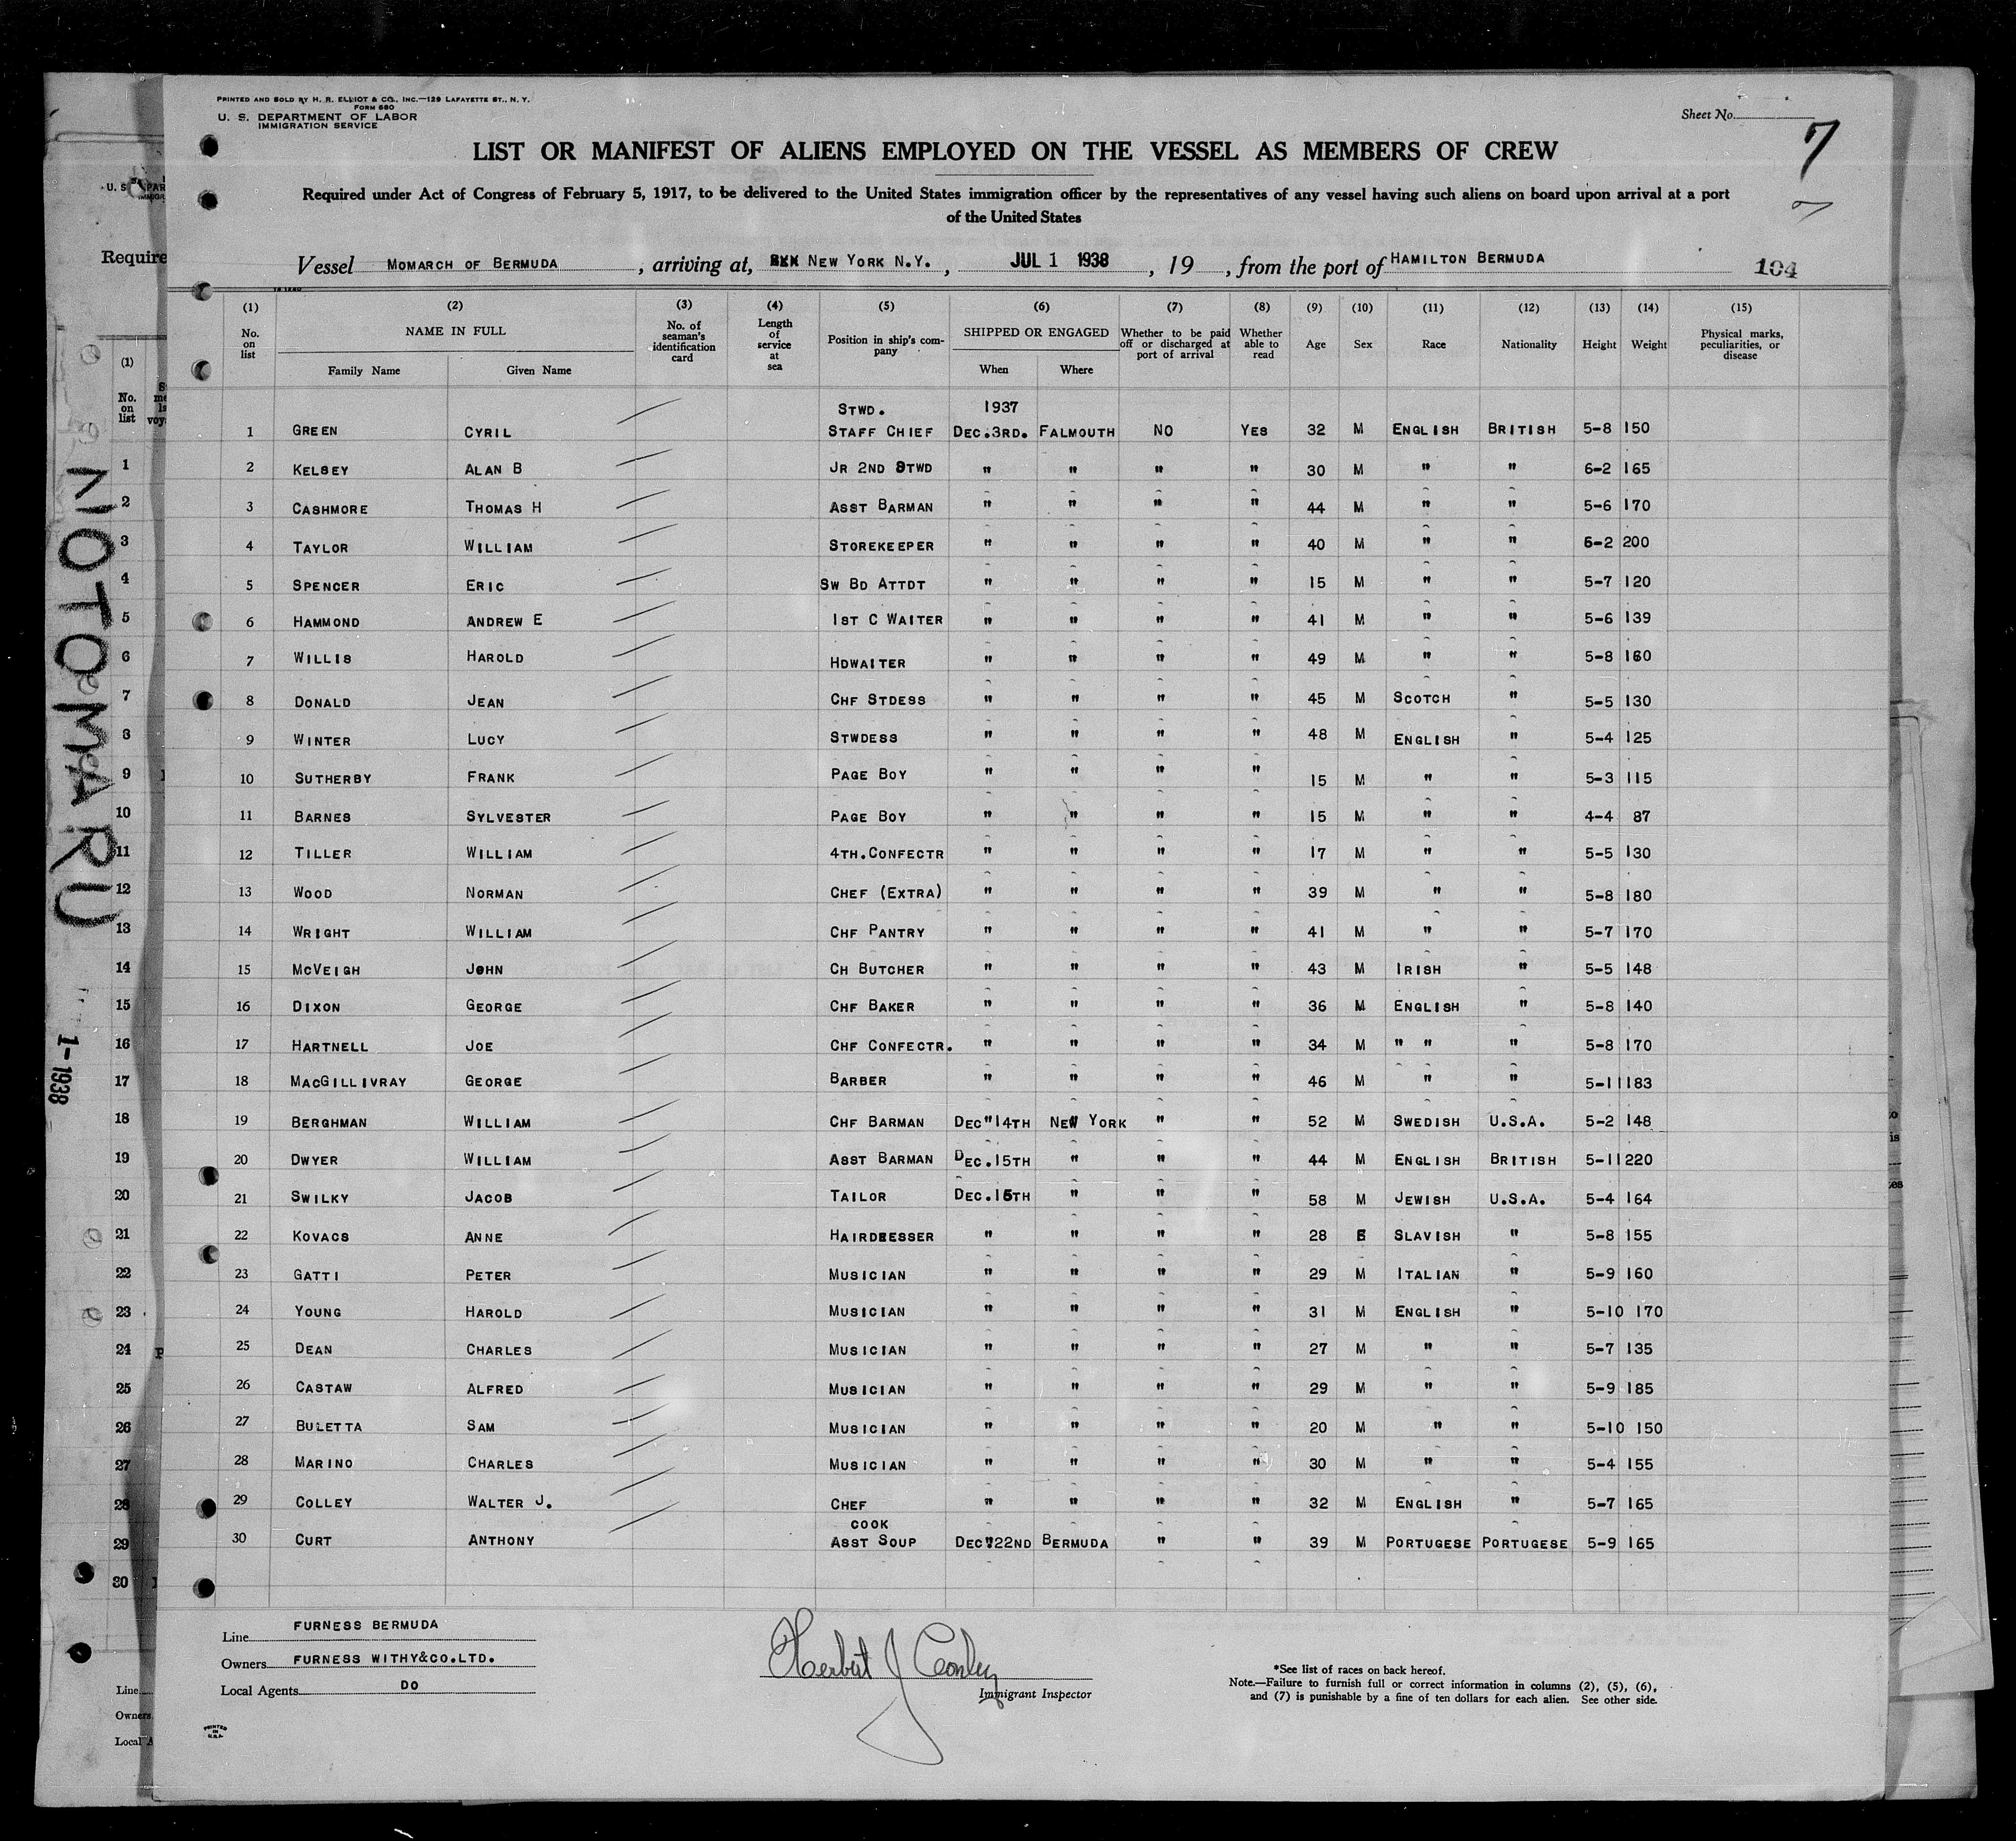 PRINTED AND SOLD BY H. R. ELLIOT & CO., INC.—129 LAFAYETTE ST., N. Y.
FORM 680
U. S. DEPARTMENT OF LABOR
IMMIGRATION SERVICE
Sheet No.
7
7
LIST OR MANIFEST OF ALIENS EMPLOYED ON THE VESSEL AS MEMBERS OF CREW
Required under Act of Congress of February 5, 1917, to be delivered to the United States immigration officer by the representatives of any vessel having such aliens on board upon arrival at a port
of the United States
Vessel MOMARCH OF BERMUDA, arriving at, NEW YORK N.Y., JUL 1 1938, 19 , from the port of HAMILTON BERMUDA 104
(1) (2) (3) (4) (5) (6) (7) (8) (9) (10) (11) (12) (13) (14) (15)
No. on list NAME IN FULL Family Name Given Name No. of seaman's identification card Length of service at sea Position in ship's company SHIPPED OR ENGAGED When Where Whether to be paid off or discharged at port of arrival Whether able to read Age Sex Race Nationality Height Weight Physical marks, peculiarities, or disease
STWD. 1937
1 GREEN CYRIL STAFF CHIEF DEC.3RD. FALMOUTH NO YES 32 M ENGLISH BRITISH 5-8 150
2 KELSEY ALAN B JR 2ND STWD " " " " 30 M " " 6-2 165
3 CASHMORE THOMAS H ASST BARMAN " " " " 44 M " " 5-6 170
4 TAYLOR WILLIAM STOREKEEPER " " " " 40 M " " 6-2 200
5 SPENCER ERIC SW BD ATTDT " " " " 15 M " " 5-7 120
6 HAMMOND ANDREW E 1ST C WAITER " " " " 41 M " " 5-6 139
7 WILLIS HAROLD HDWAITER " " " " 49 M " " 5-8 160
8 DONALD JEAN CHF STDESS " " " " 45 M SCOTCH " 5-5 130
9 WINTER LUCY STWDESS " " " " 48 M ENGLISH " 5-4 125
10 SUTHERBY FRANK PAGE BOY " " " " 15 M " " 5-3 115
11 BARNES SYLVESTER PAGE BOY " " " " 15 M " " 4-4 87
12 TILLER WILLIAM 4TH.CONFECTR " " " " 17 M " " 5-5 130
13 WOOD NORMAN CHEF (EXTRA) " " " " 39 M " " 5-8 180
14 WRIGHT WILLIAM CHF PANTRY " " " " 41 M " " 5-7 170
15 MCVEIGH JOHN CH BUTCHER " " " " 43 M IRISH " 5-5 148
16 DIXON GEORGE CHF BAKER " " " " 36 M ENGLISH " 5-8 140
17 HARTNELL JOE CHF CONFECTR. " " " " 34 M " " " 5-8 170
18 MACGILLIVRAY GEORGE BARBER " " " " 46 M " " 5-11 183
19 BERGHMAN WILLIAM CHF BARMAN DEC"14TH NEW YORK " " 52 M SWEDISH U.S.A. 5-2 148
20 DWYER WILLIAM ASST BARMAN DEC.15TH " " " 44 M ENGLISH BRITISH 5-11 220
21 SWILKY JACOB TAILOR DEC.15TH " " " 58 M JEWISH U.S.A. 5-4 164
22 KOVACS ANNE HAIRDRESSER " " " " 28 F SLAVISH " 5-8 155
23 GATTI PETER MUSICIAN " " " " 29 M ITALIAN " 5-9 160
24 YOUNG HAROLD MUSICIAN " " " " 31 M ENGLISH " 5-10 170
25 DEAN CHARLES MUSICIAN " " " " 27 M " " 5-7 135
26 CASTAW ALFRED MUSICIAN " " " " 29 M " " 5-9 185
27 BULETTA SAM MUSICIAN " " " " 20 M " " 5-10 150
28 MARINO CHARLES MUSICIAN " " " " 30 M " " 5-4 155
29 COLLEY WALTER J. CHEF " " " " 32 M ENGLISH " 5-7 165
COOK
30 CURT ANTHONY ASST SOUP DEC"22ND BERMUDA " " 39 M PORTUGESE PORTUGESE 5-9 165
Line FURNESS BERMUDA
Owners FURNESS WITHY&CO.LTD.
Local Agents DO
Herbert J Conley
Immigrant Inspector
*See list of races on back hereof.
Note.—Failure to furnish full or correct information in columns (2), (5), (6),
and (7) is punishable by a fine of ten dollars for each alien. See other side.
PRINTED
IN
U.S.A.
Require
(1)
No.
on
list
1
2
3
4
5
6
7
8
9
10
11
12
13
14
15
16
17
18
19
20
21
22
23
24
25
26
27
28
29
30
Line
Owners
Local A
NOTO MARU
1-1938